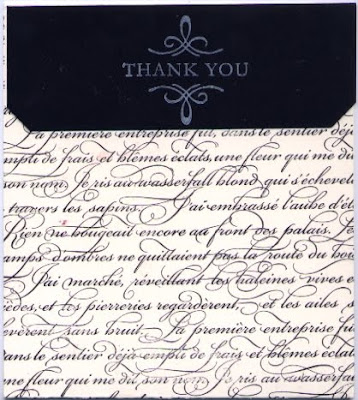 THANK YOU
La première entreprise fut, dans le sentier déjà
empli de frais et blêmes éclats, une fleur qui me di
son nom. Je ris au wasserfall blond qui s'échevela
travers les sapins. J'ai embrassé l'aube d'ét
Rien ne bougeait encore au front des palais. L'e
amps d'ombres ne quittaient pas la route du boi
J'ai marché, réveillant les haleines vives e
ièdes, et les pierreries regardèrent, et les ailes s
evèrent sans bruit. La première entreprise fu
dans le sentier déjà empli de frais et blêmes éclat
une fleur qui me dit son nom. Je ris au wasserfa